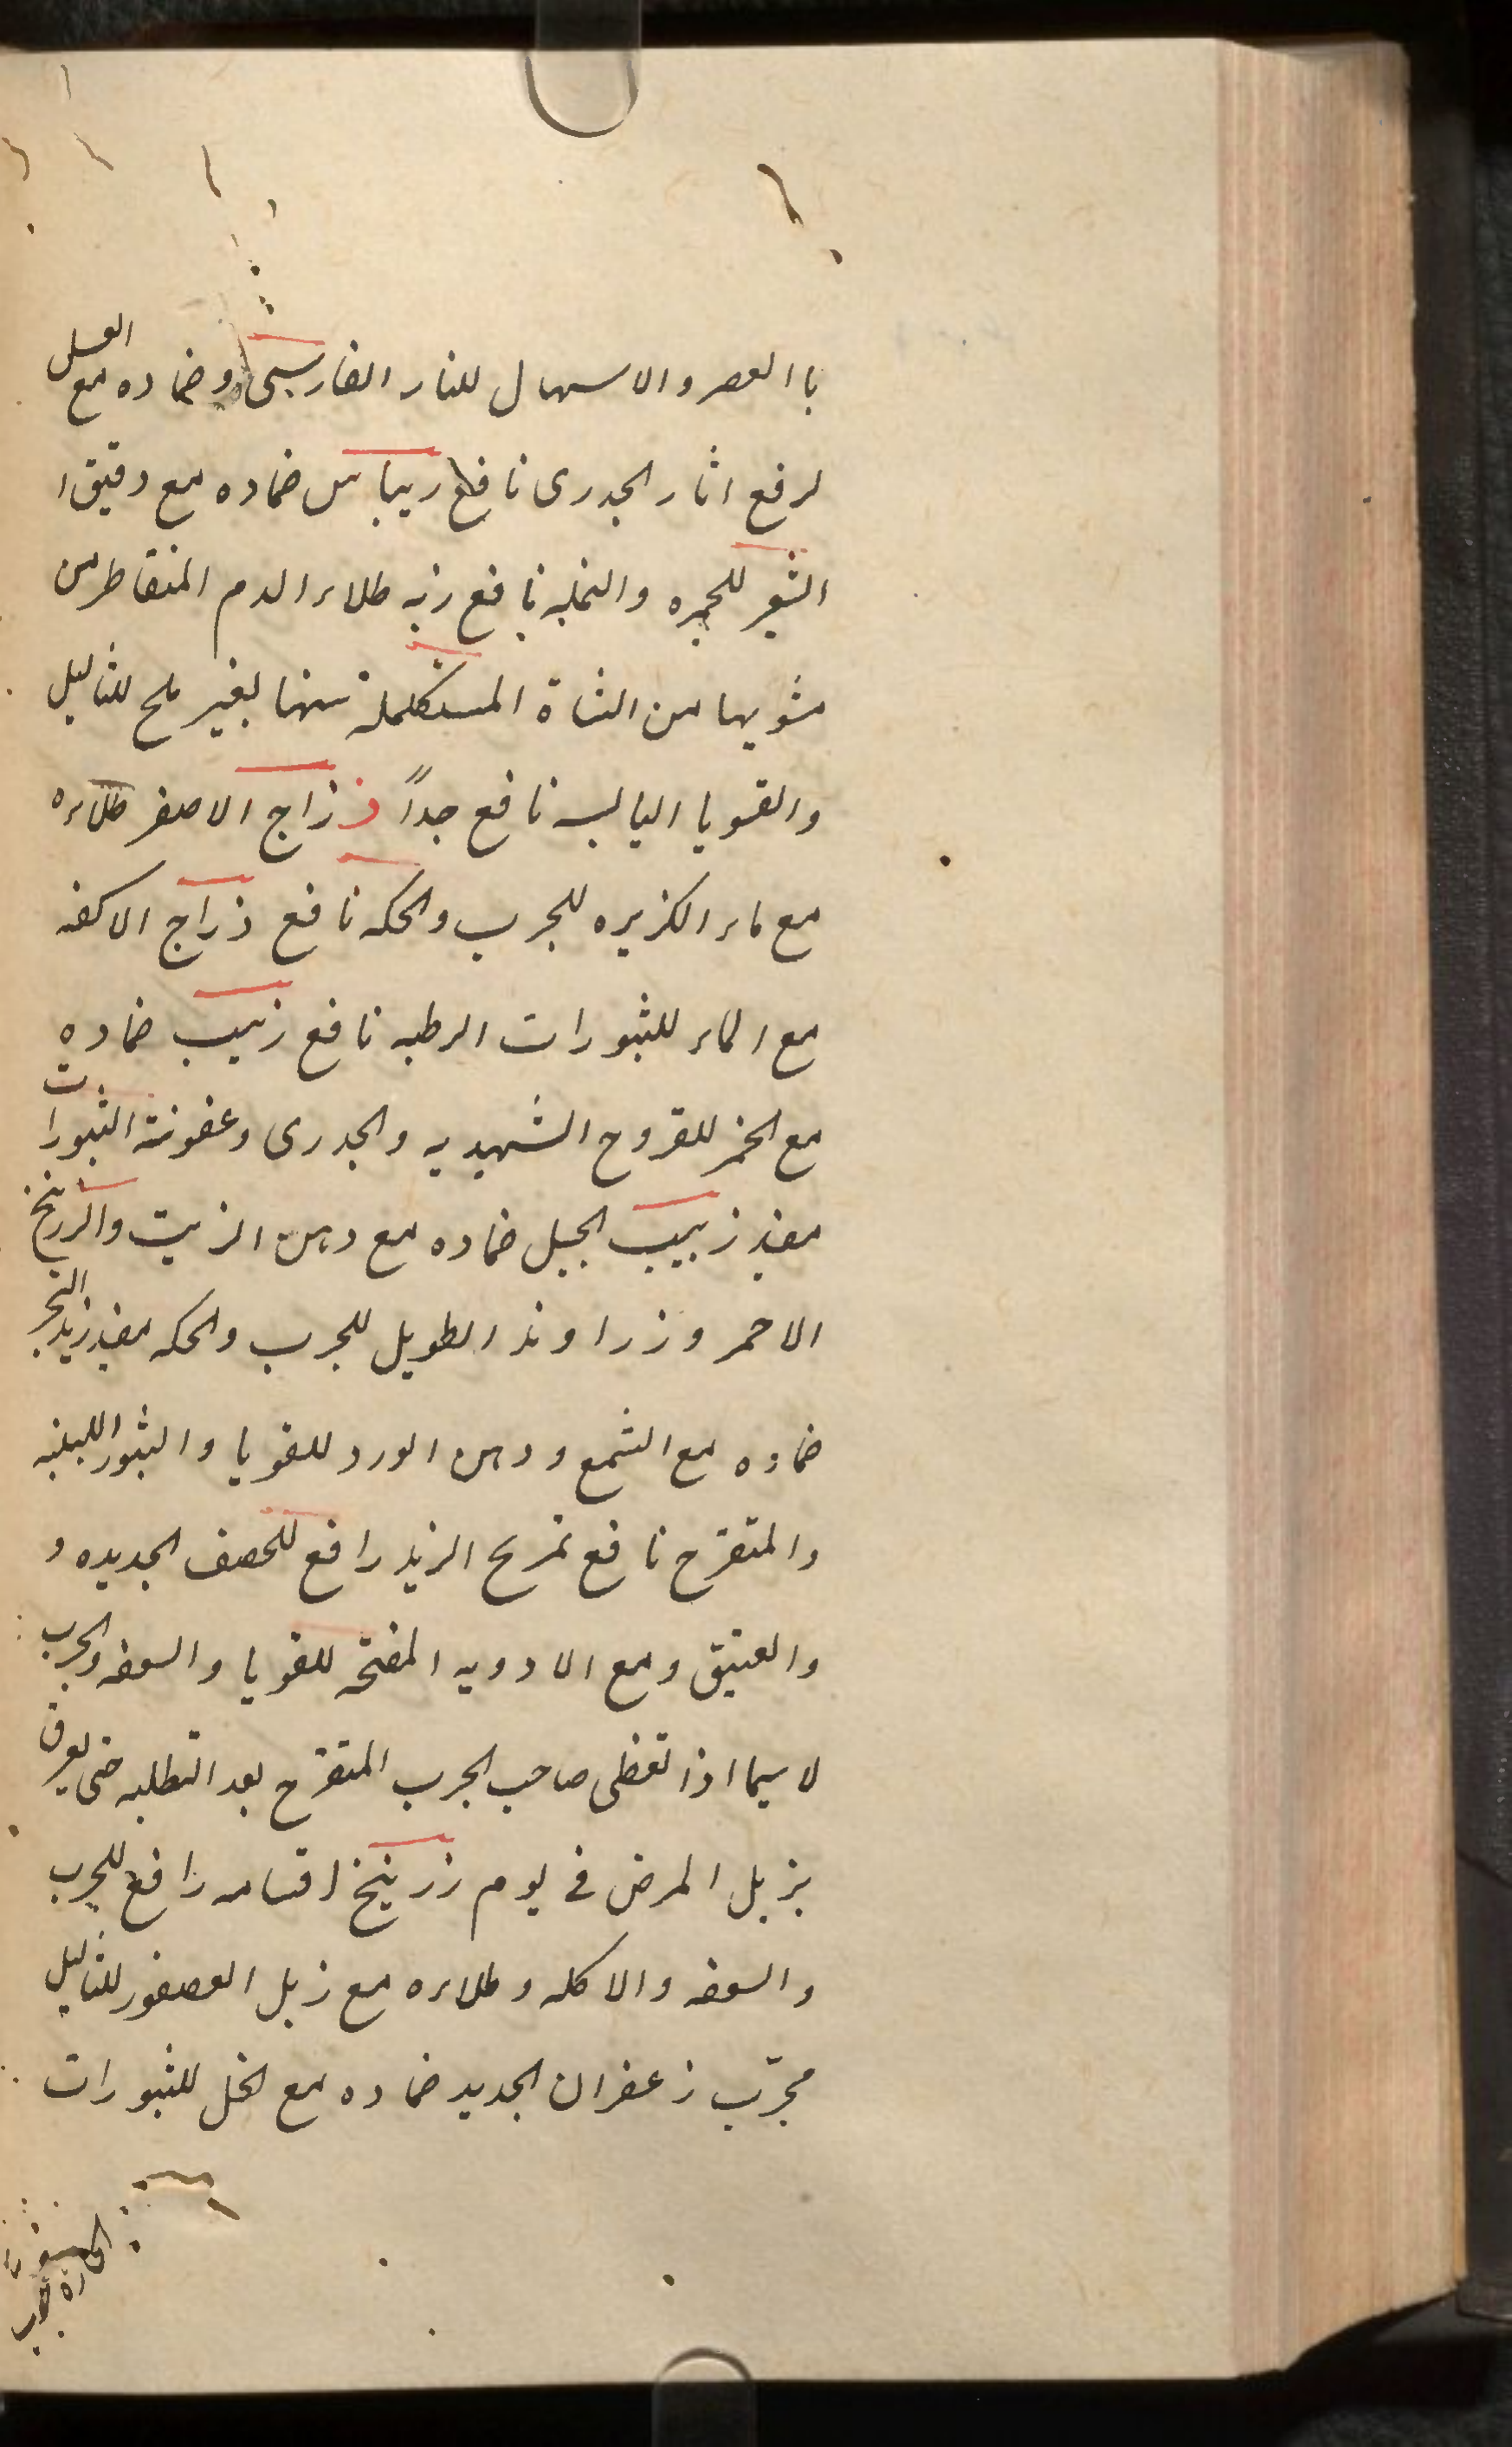 با العصر والاسهال للنار الفارسى وضماده مع العسل
لرفع اثار الجدرى نافع ريباس ضماده مع دقيق ا
الشعير للحمره والنمله نافع ريه طلاء الدم المتقاطر من
مشويها من الشاة المستكملة سنها بغير ملح للثاليل
والقوبا اليابسه نافع جداً زاج الاصفر طلاءه
مع ماء الكزبره للجرب والحكه نافع زاج الاكفه
مع الماء للثبورات الرطبه نافع زبيب ضماده
مع الخمر للقروح الشهديه والجدرى وعفونة الثبورات
مفيد زبيب الجبل ضماده مع دهن الزيت والزرنيخ
الاحمر وزراوند الطويل للجرب والحكه مفيد زبد البحر
ضماده مع الشمع ودهن الورد للقوبا والبثور اللبنيه
والمتقرح نافع تمريخ الزبد رافع للحصف الجديده و
والعتيق ومع الادويه المفتحه للقوبا والسعفه والجرب
لا سيما اذا تغطى صاحب الجرب المتقرح بعد التطليه حتى يعرق
يزيل المرض فى يوم زرنيخ اقسامه رافع للجرب
والسعفه والاكله وطلاءه مع زبل العصفور للثاليل
مجرّب زعفران الجديد ضماده مع الخل للثبورات